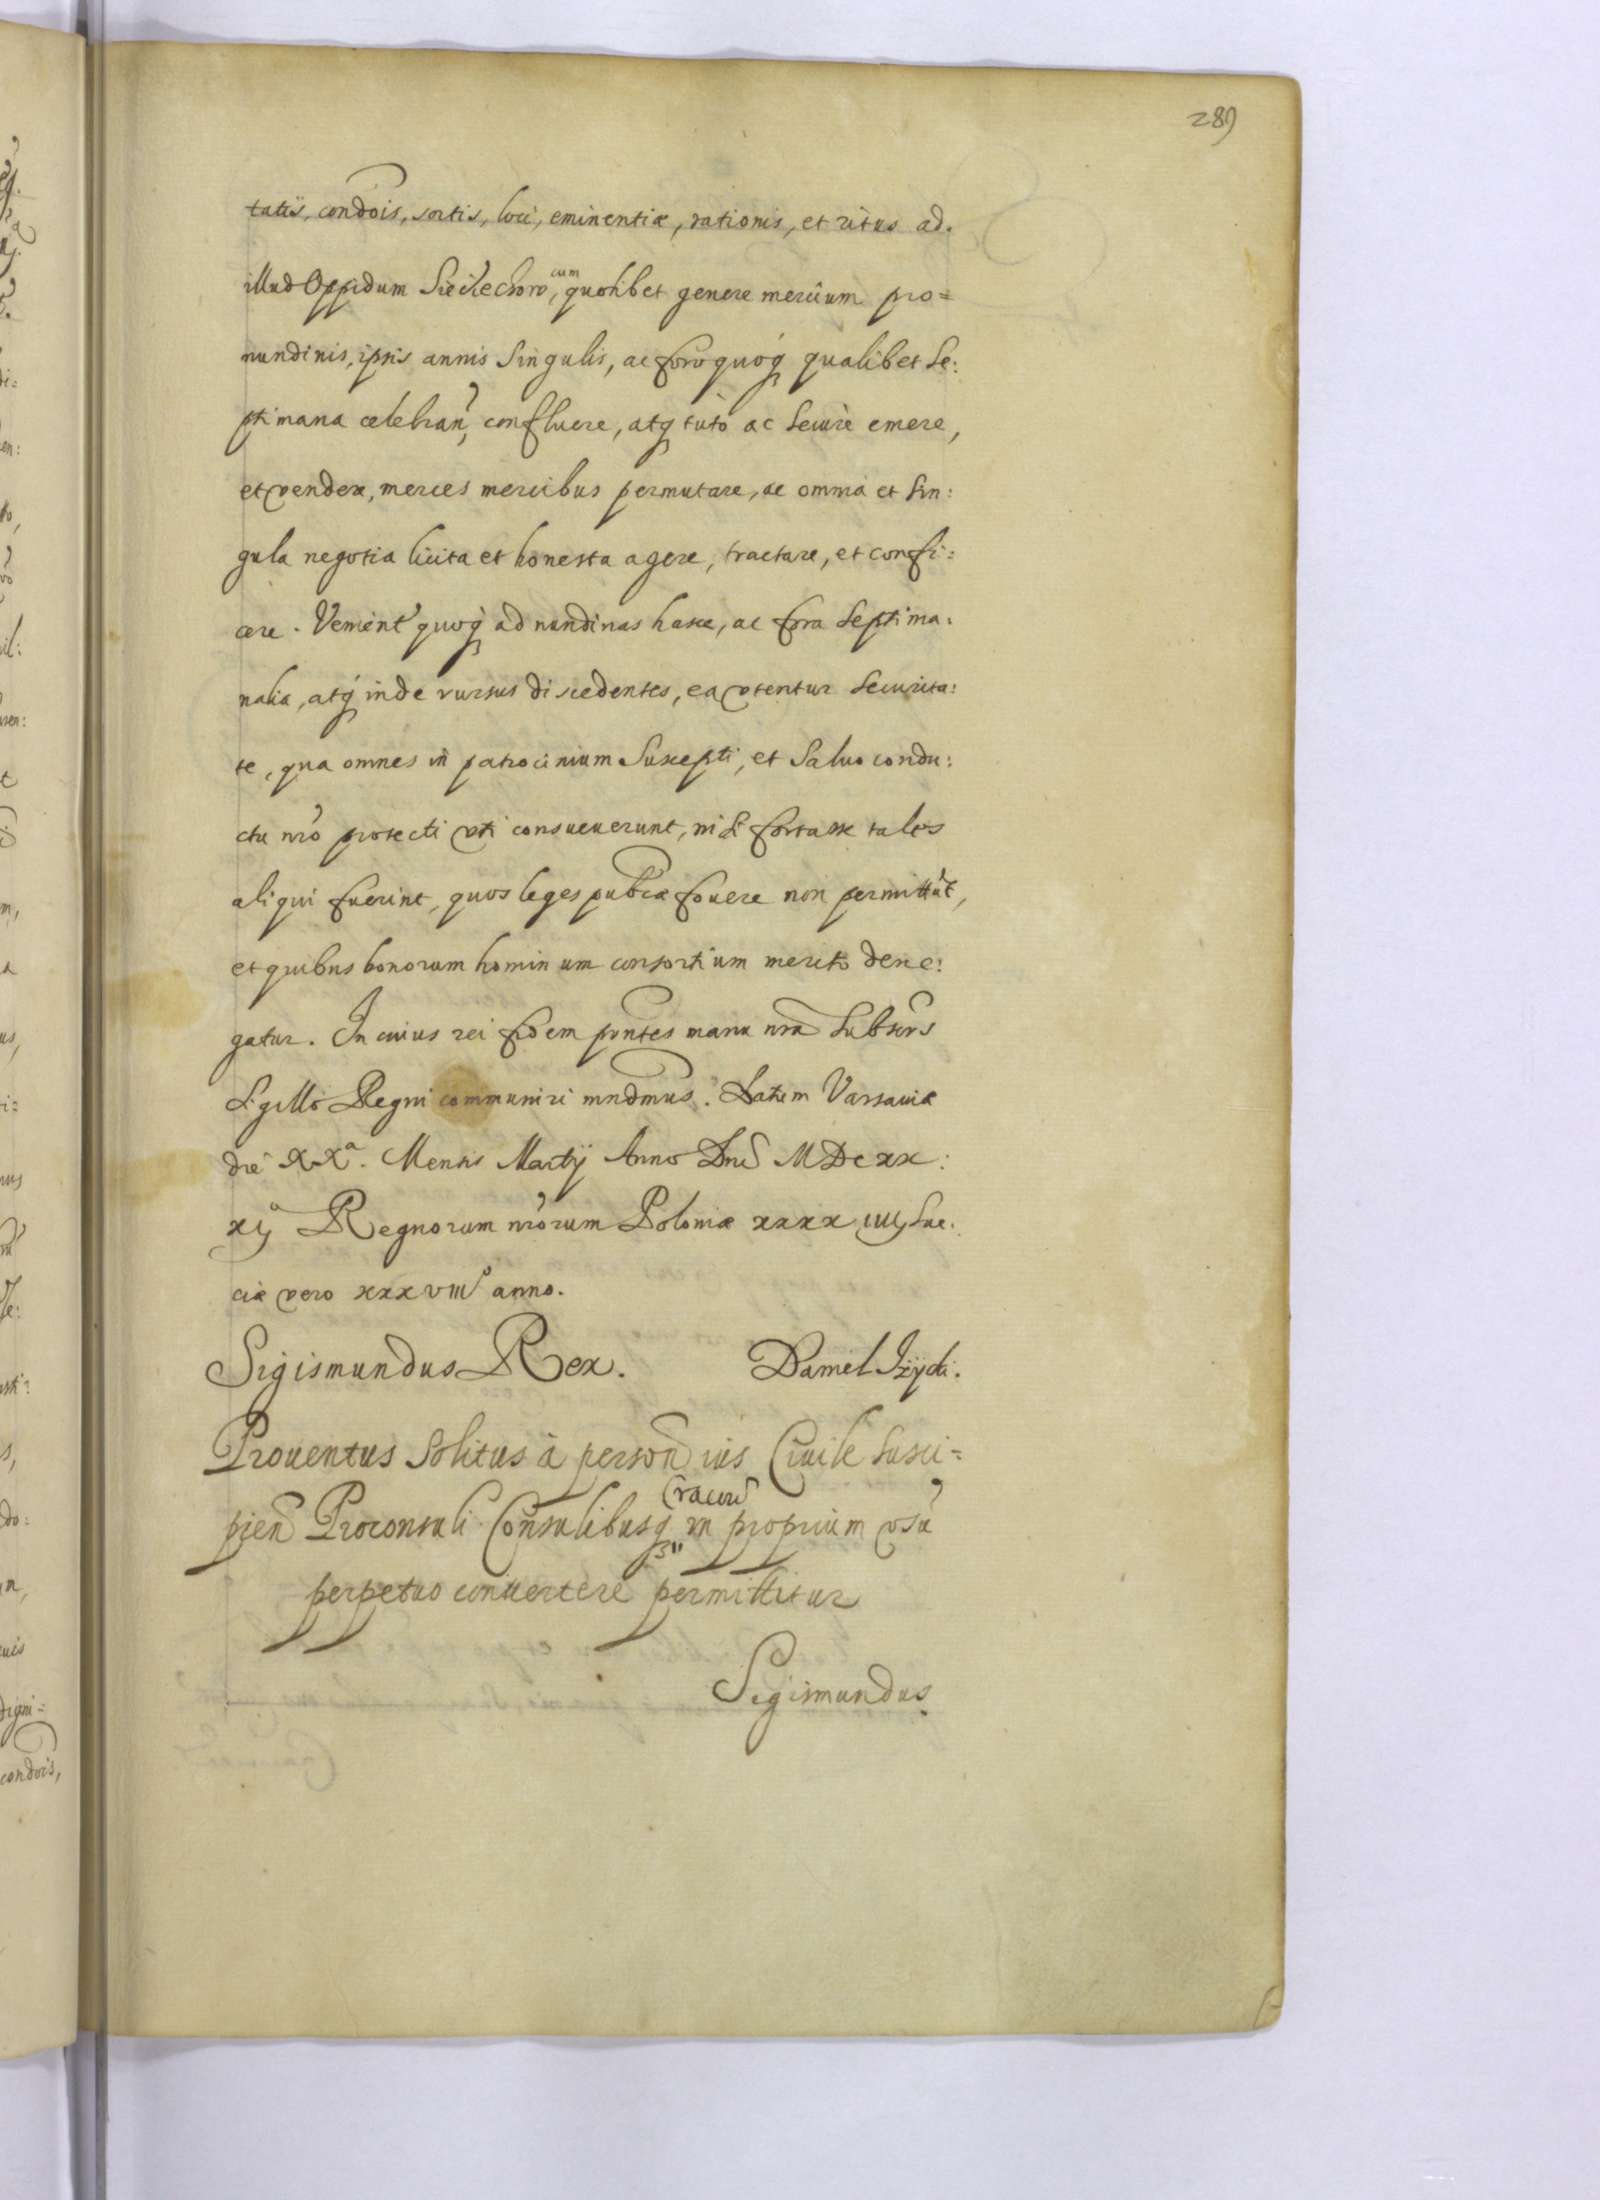 289
tatis, condöis, sortis, loci, eminentiæ, rationis, et ritus ad.
illud Oppidum Sieciechow, cum quolibet genere mercium pro=
nundinis, ipsis annis singulis, ac foro quoq́ qualibet Se:
ptimana celebran̄, confluere, atq́ tutò ac securè emere,
et vendere, merces mercibus permutare, ac omnia et sin:
gula negotia licita et honesta agere, tractare, et confi:
cere. Venient quoq́ ad nundinas hasce, ac fora septima:
nalia, atq́ inde rursus discedentes, ea vtentur securita:
te, qua omnes in patrocinium suscepti, et saluo condu:
ctu nr̃o protecti vti consueuerunt, nisi fortasse tales
aliqui fuerint, quos leges pub̃cæ fouere non permittũt,
et quibus bonorum hominum consortium merito dene:
gatur. In cuius rei fidem pn̄tes manu nr̃a subscr̃s
Sigillo Regni communiri mndmus. Datum Varsauiæ
die XXa. Mensis Martij Anno Dnĩ MDCXX:
xijo Regnorum nr̃orum Poloniæ xxxx iiij Sue:
ciæ vero xxxviiio anno.
Sigismundus Rex. Daniel
Prouentus solitus à person̄ ius Ciuile susci=
pien̄ Proconsuli Consulibusq́ Cracou̅ in proprium vsũ
perpetuo conuertere permittitur
Sigismundus.